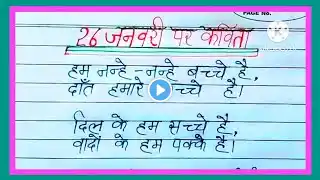 PAGE No.
26 जनवरी पर कविता
हम नन्हे-नन्हे बच्चे है,
दाँत हमारे च्चे है।
दिल के हम सच्चे है,
वादों के हम पक्के है।